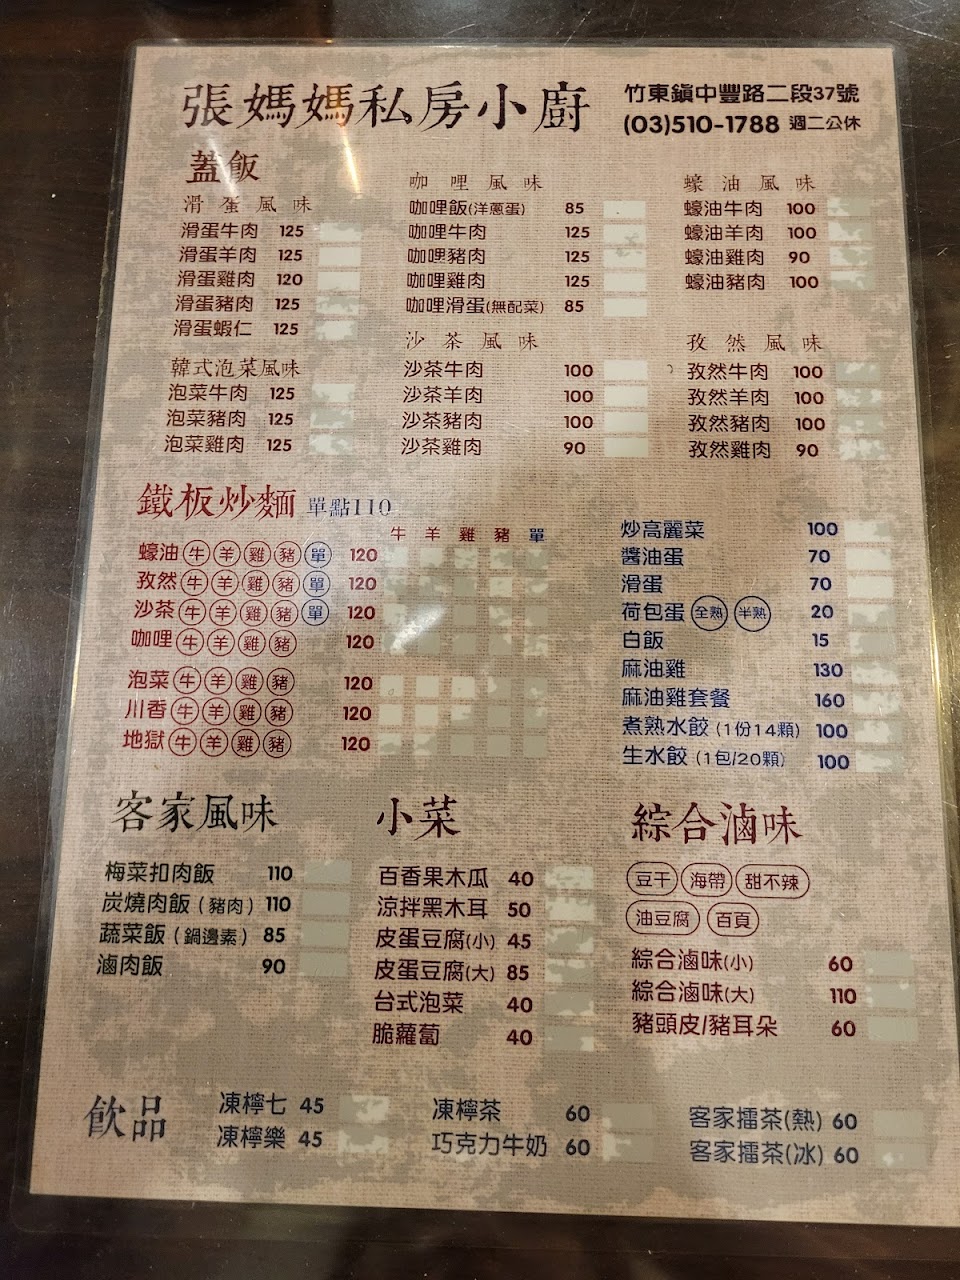 張媽媽私房小廚
竹東鎮中豐路二段37號
(03)510-1788 週二公休
蓋飯
滑蛋風味
滑蛋牛肉 125
滑蛋羊肉 125
滑蛋雞肉 120
滑蛋豬肉 125
滑蛋蝦仁 125
韓式泡菜風味
泡菜牛肉 125
泡菜豬肉 125
泡菜雞肉 125
咖哩風味
咖哩飯(洋蔥蛋) 85
咖哩牛肉 125
咖哩豬肉 125
咖哩雞肉 125
咖哩滑蛋(無配菜) 85
沙茶風味
沙茶牛肉 100
沙茶羊肉 100
沙茶豬肉 100
沙茶雞肉 90
蠔油風味
蠔油牛肉 100
蠔油羊肉 100
蠔油雞肉 90
蠔油豬肉 100
孜然風味
孜然牛肉 100
孜然羊肉 100
孜然豬肉 100
孜然雞肉 90
鐵板炒麵 單點110
牛 羊 雞 豬 單
蠔油 牛 羊 雞 豬 單 120
孜然 牛 羊 雞 豬 單 120
沙茶 牛 羊 雞 豬 單 120
咖哩 牛 羊 雞 豬 120
泡菜 牛 羊 雞 豬 120
川香 牛 羊 雞 豬 120
地獄 牛 羊 雞 豬 120
炒高麗菜 100
醬油蛋 70
滑蛋 70
荷包蛋 全熟 半熟 20
白飯 15
麻油雞 130
麻油雞套餐 160
煮熟水餃 (1份14顆) 100
生水餃 (1包/20顆) 100
客家風味
梅菜扣肉飯 110
炭燒肉飯(豬肉) 110
蔬菜飯(鍋邊素) 85
滷肉飯 90
小菜
百香果木瓜 40
涼拌黑木耳 50
皮蛋豆腐(小) 45
皮蛋豆腐(大) 85
台式泡菜 40
脆蘿蔔 40
綜合滷味
豆干 海帶 甜不辣
油豆腐 百頁
綜合滷味(小) 60
綜合滷味(大) 110
豬頭皮/豬耳朵 60
飲品
凍檸七 45
凍檸樂 45
凍檸茶 60
巧克力牛奶 60
客家擂茶(熱) 60
客家擂茶(冰) 60